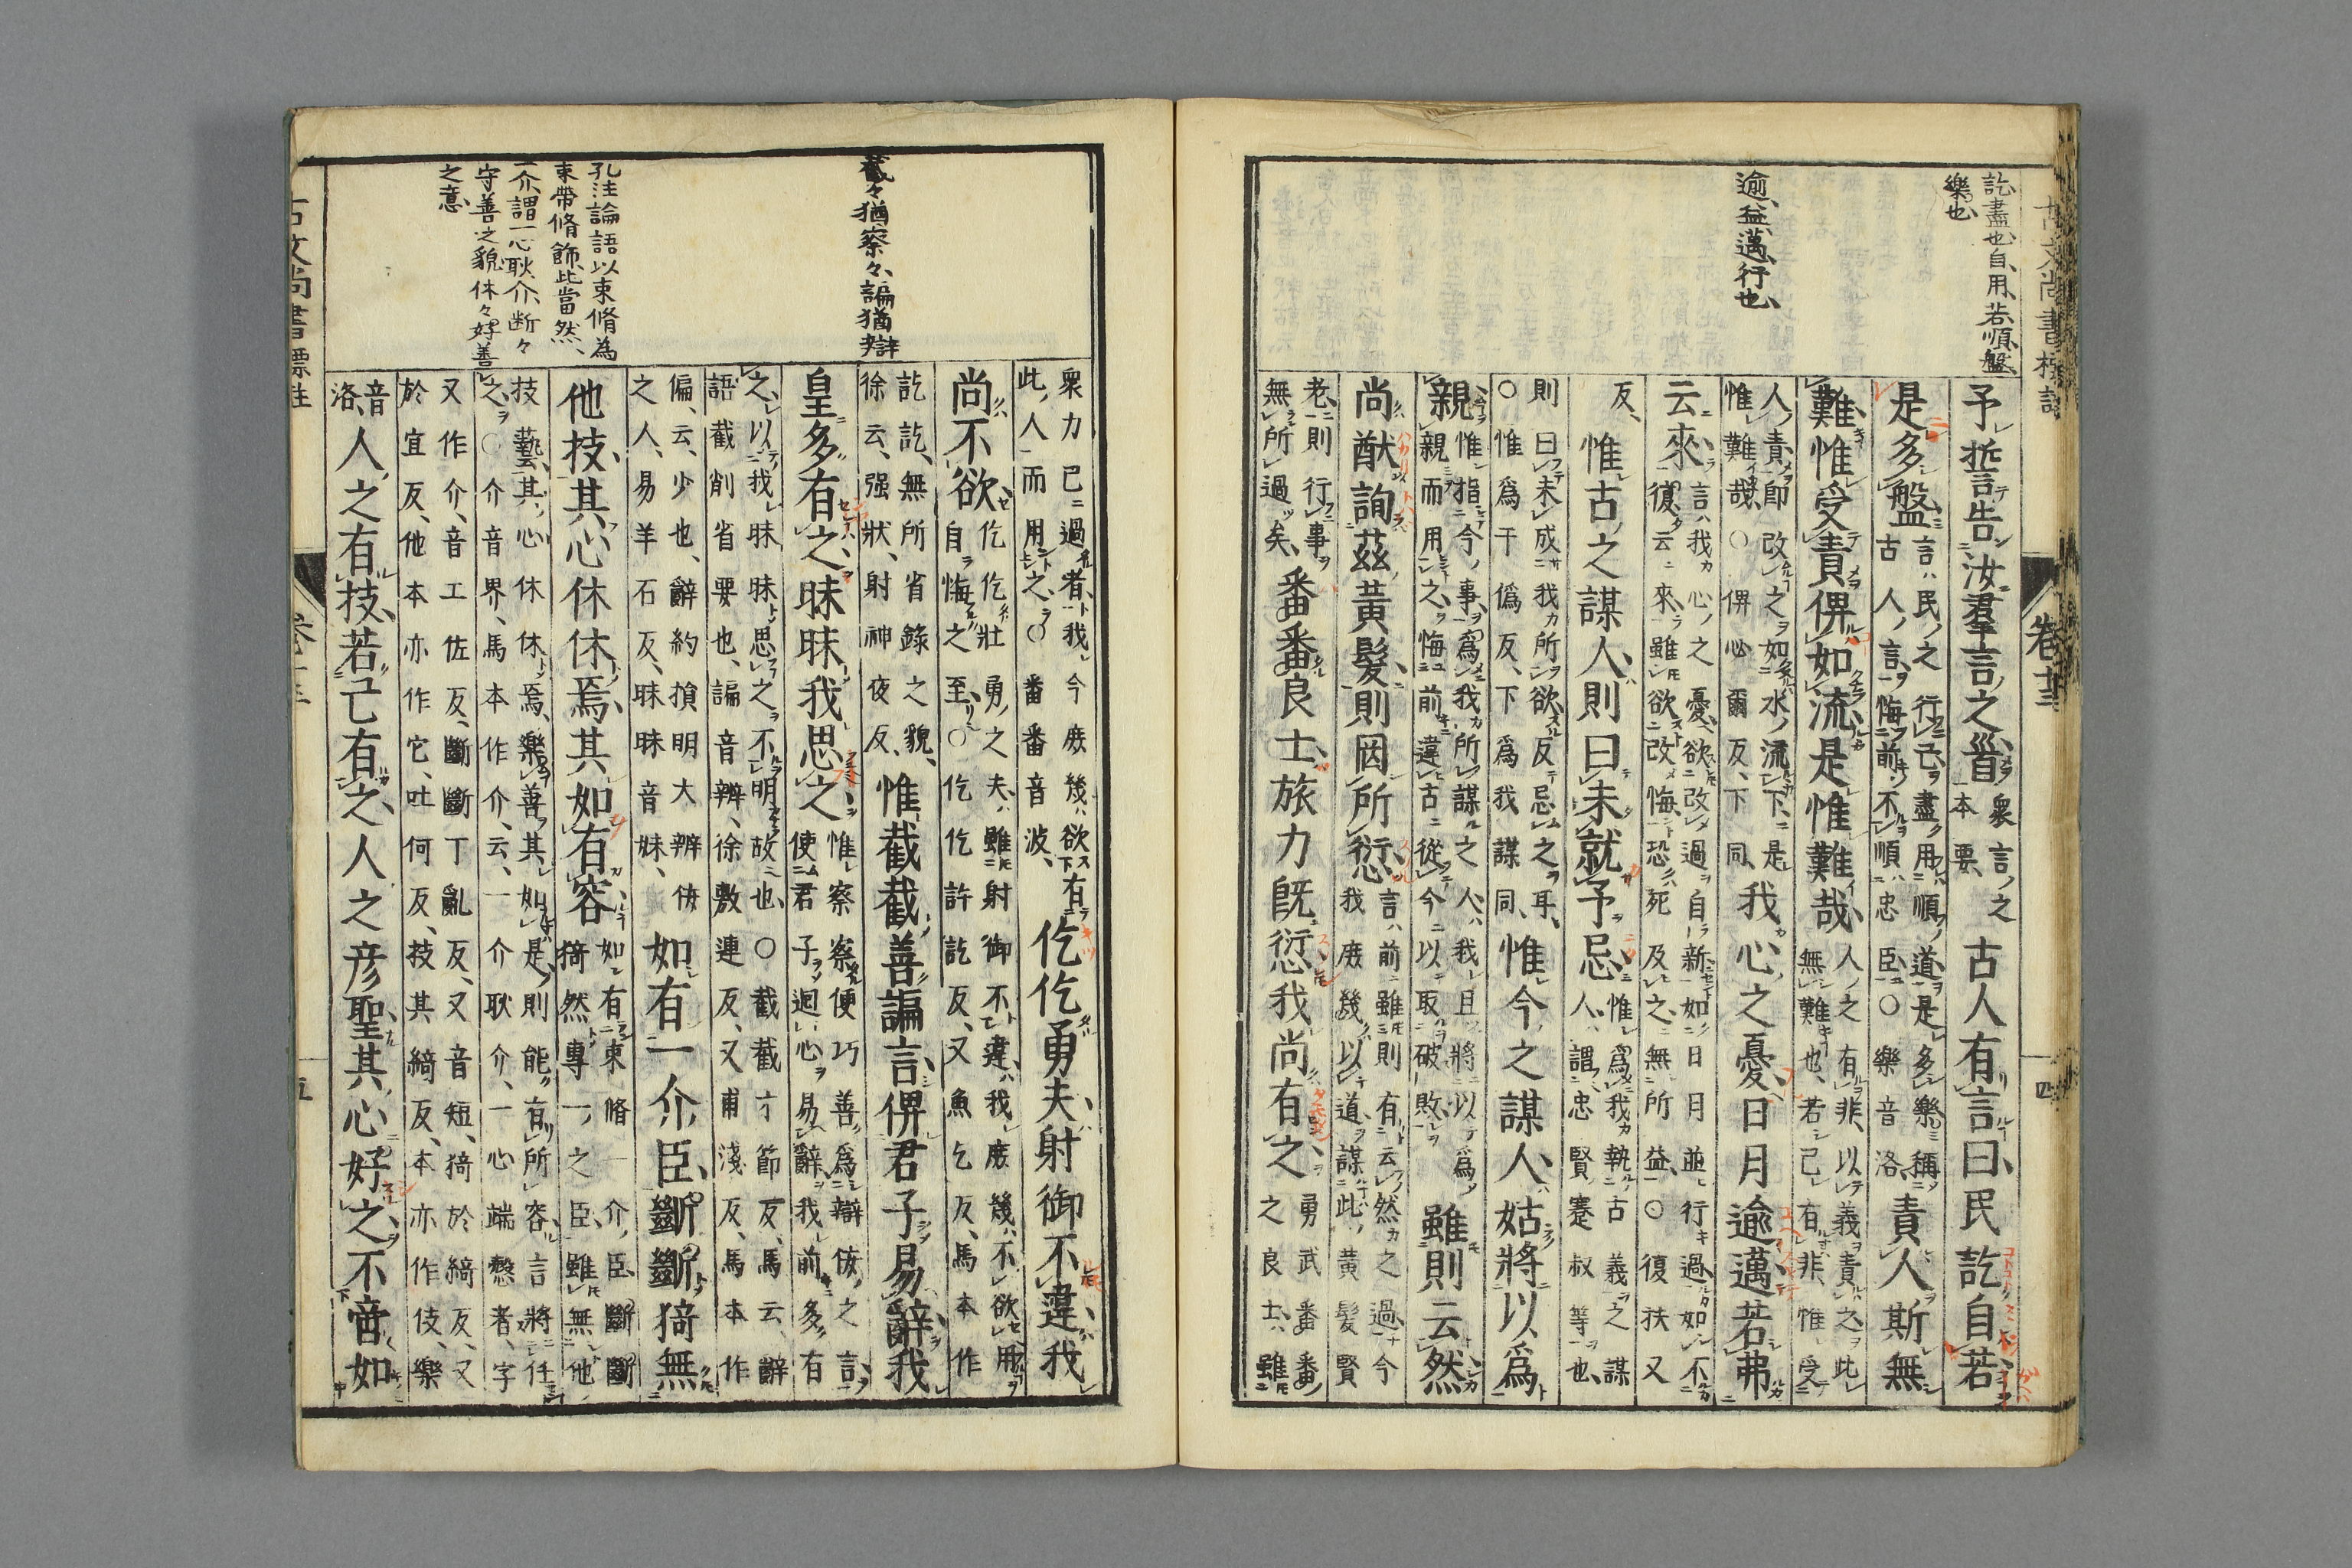 古文尚書標註
訖、盡也、自、用、若、順、盤、
樂也、
逾、益、邁、行也、
予誓告汝羣言之首、衆言之
本要、古人有言曰、民訖自若、
是多盤、言民之行己盡用順道、是多樂、稱
古人言、悔前不順忠臣、○樂音洛、責人斯無
難、惟受責俾如流、是惟難哉、人之有非、以義責之、此
無難也、若己有非、惟受
人責、即改之如水流下、是
惟難哉、○俾必爾反、下同、我心之憂、日月逾邁、若弗
云來、言我心之憂、欲改過自新、如日月並行過、如不
復云來、雖欲改悔、恐死及之、無所益、○復扶又
反、惟古之謀人、則曰未就予忌、惟爲我執古義之謀
人、謂忠賢蹇叔等也、
則曰未成我所欲、反忌之耳、
○惟爲于僞反、下爲我謀同、惟今之謀人、姑將以爲
親、惟指今事爲我所謀之人、我且將以爲
親而用之、悔前違古從今、以取破敗、雖則云然、
尚猷詢茲黃髮、則罔所愆、言前雖則有云然之過、今
我庶幾以道謀此黃髮賢
老、則行事
無所過矣、番番良士、旅力既愆、我尚有之、勇武番番
之良士、雖
卷十三
四
截々、猶察々、諞、猶辯
孔注論語以束脩為
束帶脩飾、此當然、
一介、謂一心耿介、断々
守善之貌、休々、好善
之意、
衆力已過者、我今庶幾欲有
此人而用之、○番番音波、仡仡勇夫、射御不違、我
尚不欲、仡仡壯勇之夫、雖射御不違、我庶幾不欲用
自悔之至、○仡仡許訖反、又魚乞反、馬本作
訖訖、無所省錄之貌、
徐云、强狀、射神夜反、惟截截善諞言、俾君子易辭、我
皇多有之、昧昧我思之、惟察察便巧、善爲辯佞之言、
使君子迴心易辭、我前多有
之、以我昧昧思之不明故也、○截截才節反、馬云、辭
語截削省要也、諞音辨、徐敷連反、又甫淺反、馬本作
偏、云、少也、辭約損明、大辨佞
之人、易羊石反、昧昧音妹、如有一介臣、斷斷猗無
他技、其心休休焉、其如有容、如有束脩一介臣、斷斷
猗然專一之臣、雖無他
技藝、其心休休焉、樂善、其如是、則能有所容、言將任
之、○介音界、馬本作介、云、一介、耿介、一心端慤者、字
又作介、音工佐反、斷斷丁亂反、又音短、猗於綺反、又
於宜反、他本亦作它、吐何反、技其綺反、本亦作伎、樂
音
洛、人之有技、若己有之、人之彥聖、其心好之、不啻如
古文尚書標註
五